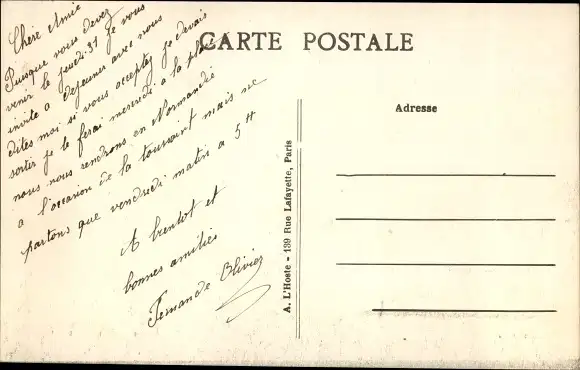 Chère Amie
Puisque vous devez
venir le jeudi 31 je vous
invite a dejeuner avec nous
dites moi si vous acceptez je devais
sortir je le ferai mercredi a la place
nous nous rendrons en Normandie
a l'occasion de la toussaint mais ne
partons que vendredi matin a 5 H
A bientot et
bonnes amitiés
Fernande Olivier
CARTE POSTALE
Adresse
A. L'Hoste - 139 Rue Lafayette, Paris